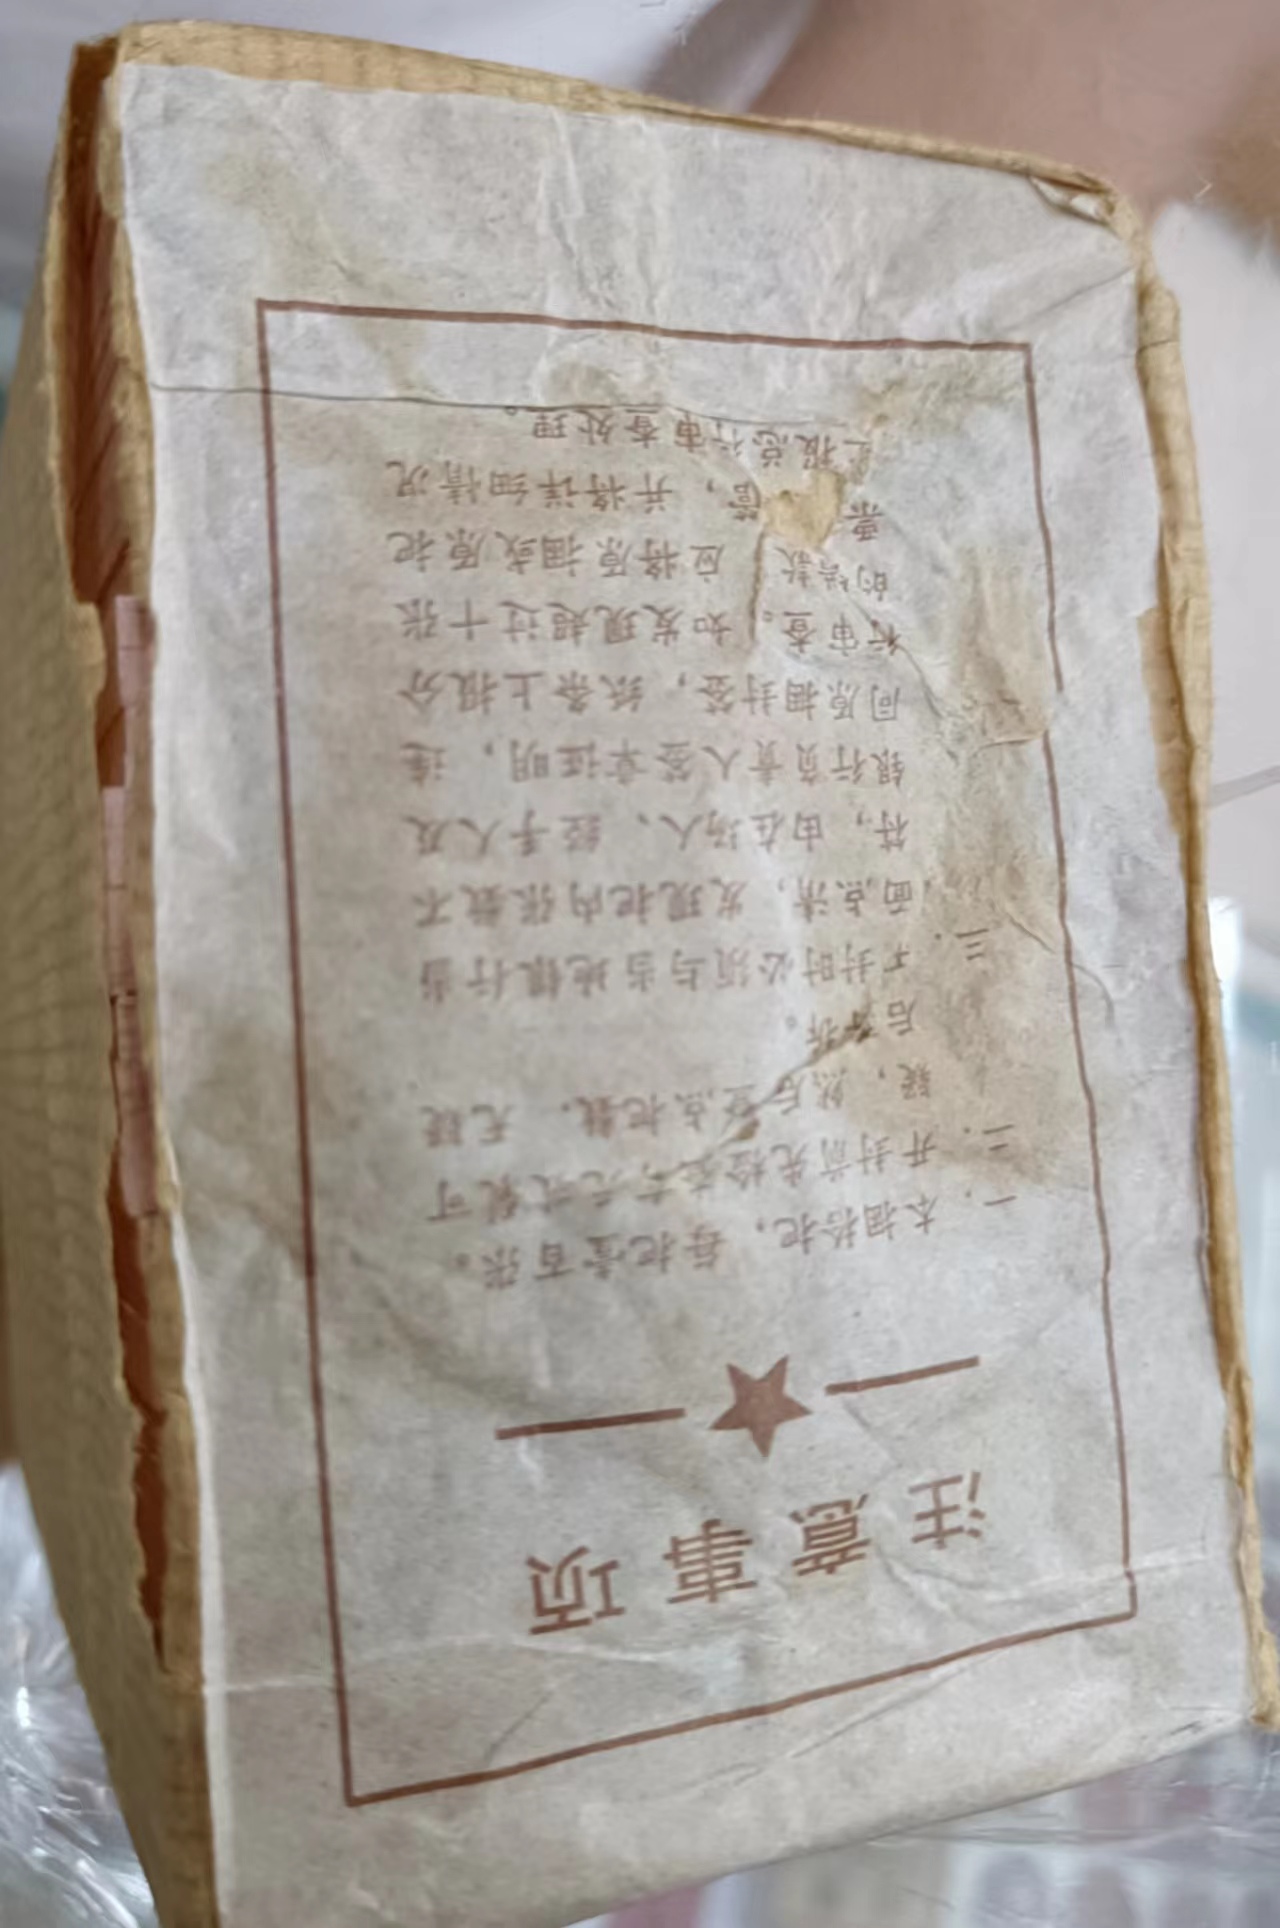 注意事项
一．本捆拾把，每把壹百张。
二．开封前先检查有无破裂可
疑，然后查点把数．无疑
后 拆。
三．开封时必须与当地银行当
面点清，发现把内张数不
符，由在场人、经手人及
银行负责人签章证明，连
同原捆封签，纸条上报分
行审查。如发现超过十张
的错款 应将原捆或原把
票 ，并将详细情况
上报总行审查处理。